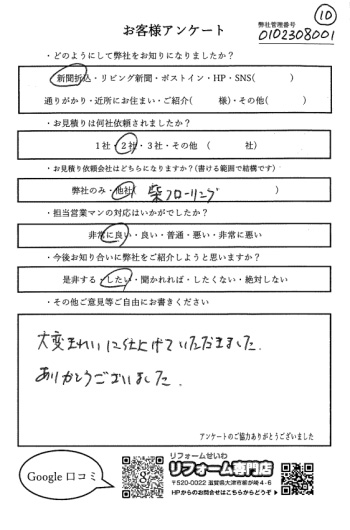 ⑩
お客様アンケート
弊社管理番号
0102308001
・どのようにして弊社をお知りになりましたか？
新聞折込・リビング新聞・ポストイン・HP・SNS(　　　)
通りがかり・近所にお住まい・ご紹介(　　　様)・その他(　　　)
・お見積りは何社依頼されましたか？
1社・2社・3社・その他（　　　社)
・お見積り依頼会社はどちらになりますか？(書ける範囲で結構です)
弊社のみ・他社(　柴フローリング　)
・担当営業マンの対応はいかがでしたか？
非常に良い・良い・普通・悪い・非常に悪い
・今後お知り合いに弊社をご紹介しようと思いますか？
是非する・したい・聞かれれば・したくない・絶対しない
・その他ご意見等ご自由にお書きください
大変きれいに仕上げていただきました.
ありがとうございました.
アンケートのご協力ありがとうございました
Google 口コミ
g
リフォームせいわ
リフォーム専門店
〒520-0022 滋賀県大津市柳が崎4-6
HPからのお問合せはこちらからどうぞ